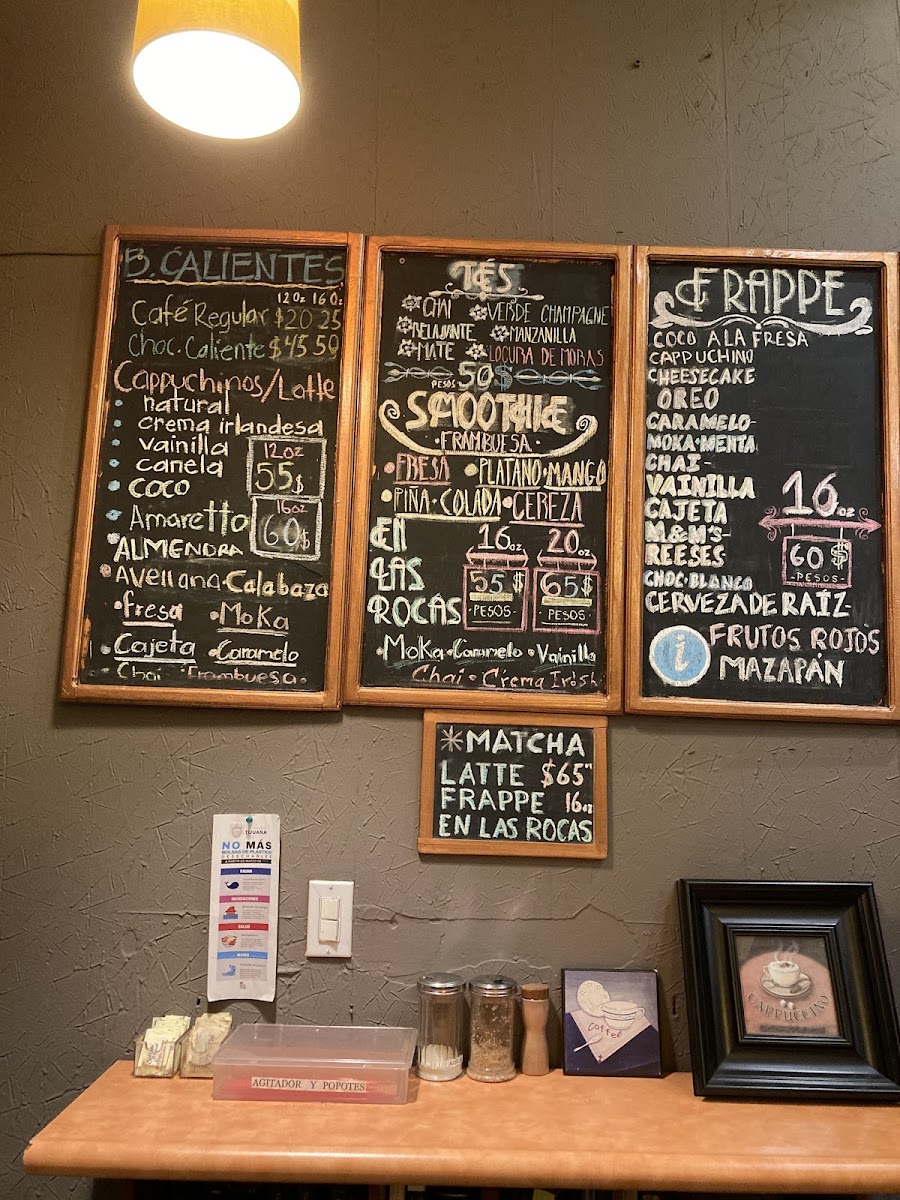 B. CALIENTES
12 Oz 16 Oz
Café Regular $20 25
Choc. Caliente $45 50
Cappuchinos/Latte
natural
crema irlandesa
vainilla
canela
COCO
12oz
55$
16oz
60$
Amaretto
ALMENDRA
Avellana · Calabaza
· fresa · Moka
· Cajeta · Caramelo
· Chai · Frambuesa ·
TÉS
CHAI
VERDE CHAMPAGNE
RELAJANTE
MANZANILLA
MATE
LOCURA DE MORAS
PESOS 50$
SMOOTHIE
· FRAMBUESA ·
· FRESA · PLATANO · MANGO
· PIÑA · COLADA · CEREZA
EN
LAS
ROCAS
16oz 20oz
55$ 65$
- PESOS - - PESOS -
· Moka · Caramelo · Vainilla
Chai · Crema Irish
FRAPPE
COCO A LA FRESA
CAPPUCHINO
CHEESECAKE
OREO
CARAMELO-
MOKA · MENTA
CHAI -
VAINILLA
CAJETA
M&M'S-
REESES
CHOC. BLANCO
CERVEZA DE RAÍZ-
16oz
60$
- PESOS -
i FRUTOS ROJOS
MAZAPÁN
*MATCHA
LATTE $65"
FRAPPE 16oz
EN LAS ROCAS
TIJUANA
NO MÁS
BOLSAS DE PLÁSTICO
DESECHABLES
FAUNA
INUNDACIONES
SALUD
MARES
AGITADOR Y POPOTES
Coffee
CAPPUCCINO